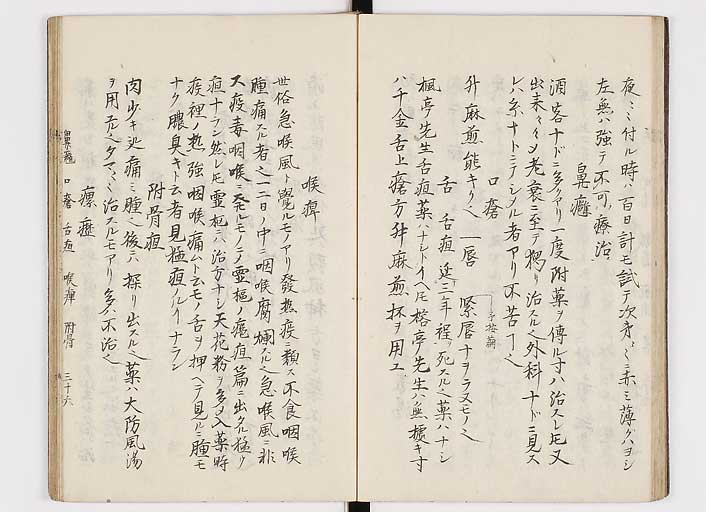 夜ミミ付ル時ハ百日計モ試テ次第ミミニ赤ミ薄クハヨシ
左無ハ強テ不可療治
鼻癰
酒客ナドニ多クアリ一度附薬ヲ傳ル寸ハ治スレ𪜈又
出来ル々イメ老衰ニ至テ授リ治スル也外科ナドニ見ス
レハ糸ナトニテシメル者アリ不苦丁也
口瘡
升麻煎能キ也 一唇 緊唇ナヲラヌモノ也
舌 舌疽 廷三年程ニ死スル也薬ハナシ
楓亭先生舌疽薬ハナシトイヘ𪜈榕亭先生ハ無據キ寸
ハ千金舌上瘡方升麻煎杯ヲ用エ
喉痺
世俗急喉風ト覺ルモノアリ發熱疫ニ類ス不食咽喉
腫痛スル者也一二日ノ中ニ咽喉腐爛スル也急喉風ニ非
ス疫毒咽喉ニ発ルモノ也霊樞ノ癰疽篇ニ出タル猛
疽ナラン然レ𪜈霊樞ハ治方ナシ天花粉ヲ多ク入薬時
疾裡ノ熱強咽喉痛ムト云モノ舌ヲ押ヘテ見ルニ腫モ
ナク膿臭キト云者見猛疽ノルイナラン
附骨疽
肉少キ処痛ミ腫也後ニハ探リ出スル也薬ハ大防風湯
ヲ用エ也タマ々ミ治スルモアリ多ハ不治也
瘰癧
鼻癰 口瘡 舌疽 喉痺 附骨 三十六